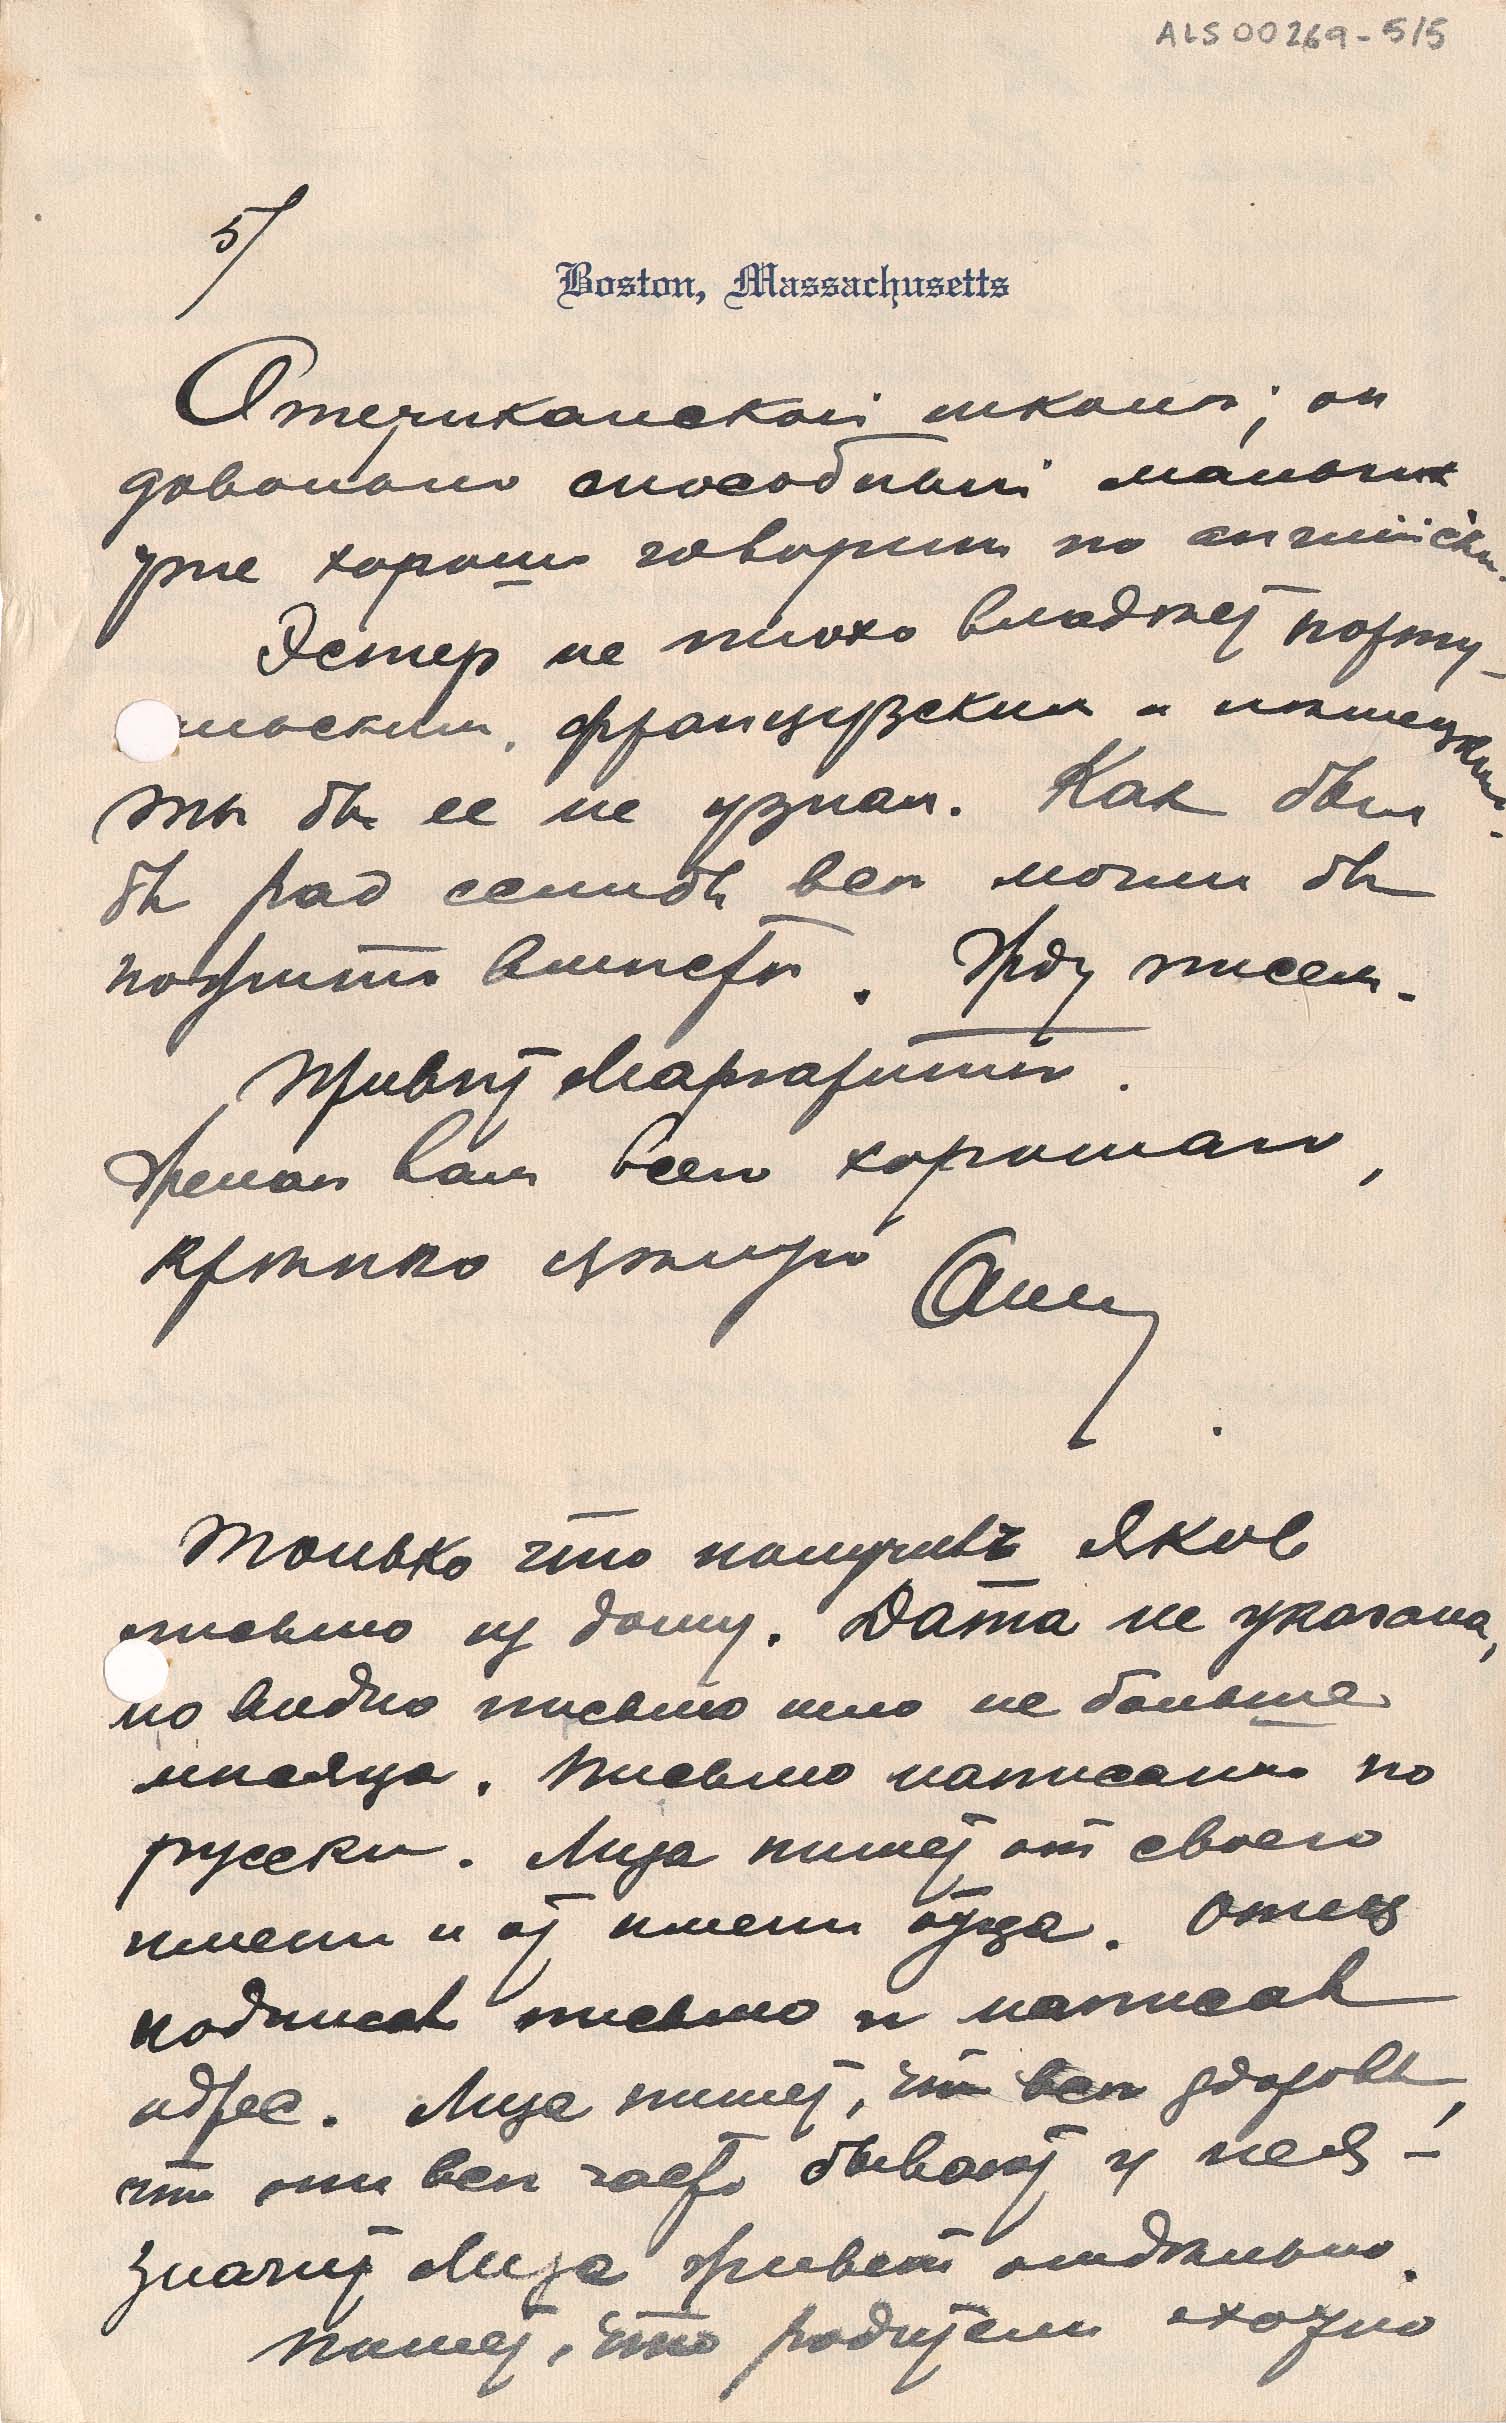 ALS 00269-5/5
5/
Boston, Massachusetts
Американской школѣ; он
довольно способный мальчик
уже хорошо говорит по английски.
Эстер не плохо владѣет порту-
альским, французским и нѣмецким.
ты бы ее не узнал. Как был
бы рад если бы всѣ могли бы
пожить вмѣстѣ. Жду писем.
Привѣт Маргаритѣ.
Желаю вам всего хорошаго,
крѣпко цѣлую
Только что получивъ Яков
письмо из дому. Дата не указана,
но видно письмо шло не больше
мѣсяца. Письмо написано по
русски. Лиза пишет от своего
имени и от имени отца. Отец
подписав письмо и написав
адрес. Лиза пишет, что всѣ здоровы,
что они всѣ часто бывают у нея -
значит Лиза живет отдѣльно.
Пишет, что родители охотно